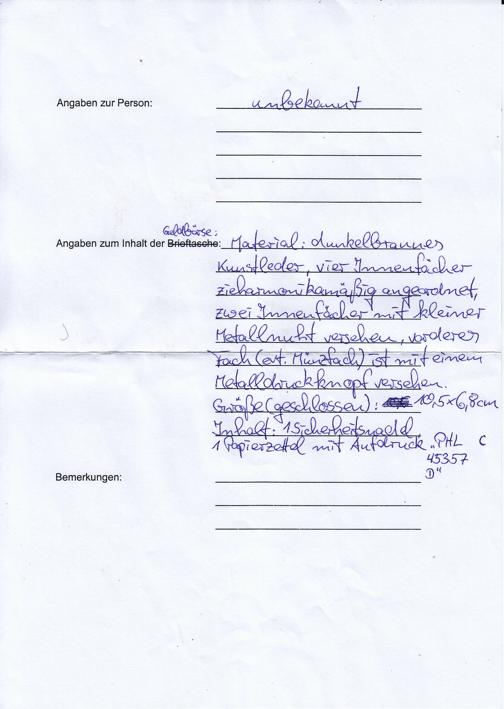 Angaben zur Person: unbekannt
Geldbörse:
Angaben zum Inhalt der Brieftasche: Material: dunkelbraunes
Kunstleder, vier Innenfächer
zieharmonikamäßig angeordnet,
zwei Innenfächer mit kleiner
Metallnuht versehen, vorderes
Fach (evt. Münzfach) ist mit einem
Metalldruckknopf versehen.
Größe (geschlossen): 10,5x6,8cm
Inhalt: 1 Sicherheitsnadel
1 Papierzettel mit Aufdruck „PHL C
45357
D"
Bemerkungen: